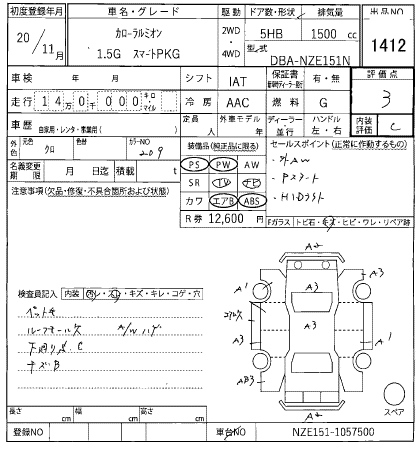 初度登録年月 車名・グレード 駆動 ドア数・形状 排気量 出品NO
20/11月 カローラルミオン 2WD・4WD 5HB 1500 cc 1412
1.5G スマートPKG 型式 DBA-NZE151N
車検 年 月 シフト IAT 保証書 有・無 評価点
走行 14万0000 キロ・マイル 冷房 AAC 燃料 G 3
車歴 自家用・レンタ・事業用( ) 定員 人 外車モデル 年 ディーラー・並行 ハンドル 左・右 内装評価 C
外色 元色 クロ 色替 カラーNO 209 装備品(純正品に限る) セールスポイント(正常に作動するもの)
名義変更期限 月 日迄 積載 t PS PW AW ・外AW
注意事項(欠品・修復・不具合箇所および状態) SR TV ナビ ・Pスタート
カワ エアB ABS ・HIDライト
R券 12,600 円 Fガラス トビ石・キズ・ヒビ・ワレ・リペア跡
A2
A3 A3
A1
A3 A1
A3
AB3
A2
検査員記入 内装 ヨゴレ・スレ・キズ・キレ・コゲ・穴
ペットモ
ルーフモール欠 A/Wハゲ
下廻りS.C
キズB
スペア
長さ cm 幅 cm 高さ cm
登録NO 車台NO NZE151-1057500